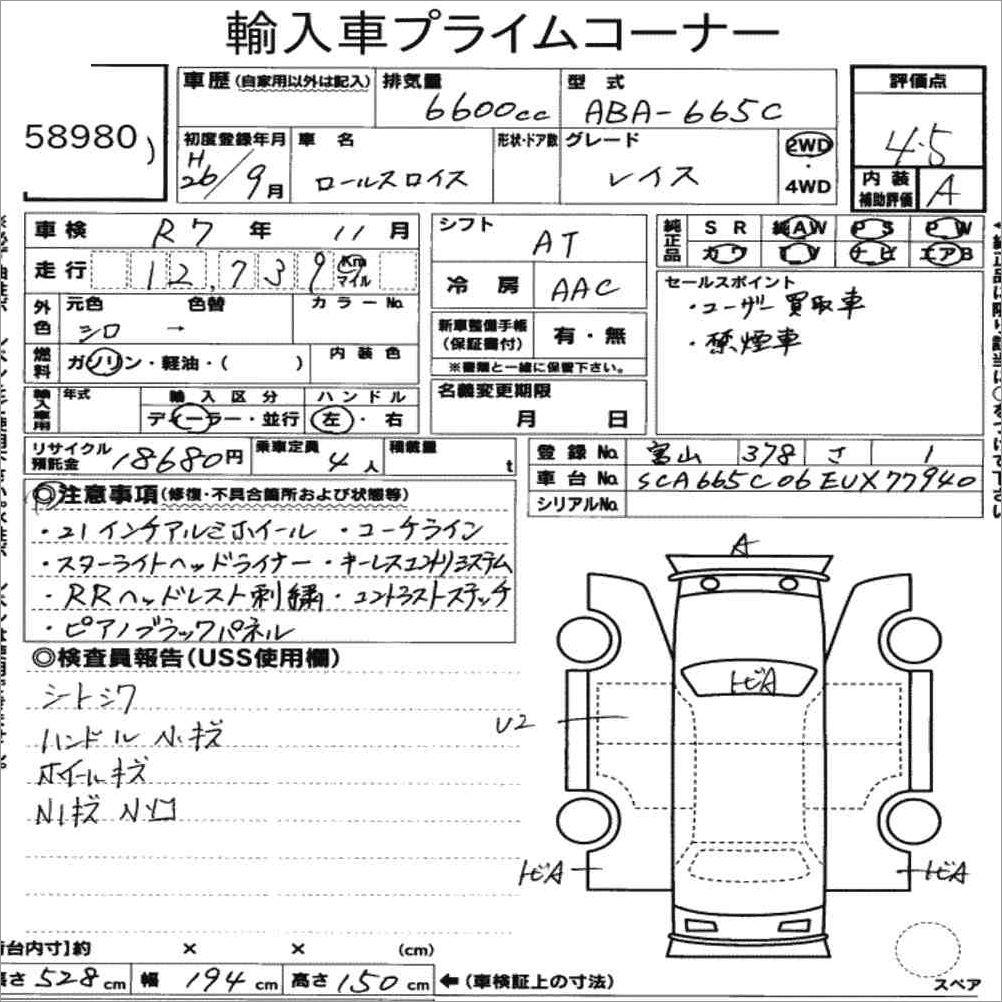 輸入車プライムコーナー
58980
車歴(自家用以外は記入) 排気量 6600cc 型式 ABA-665C 評価点 4.5
初度登録年月 H26/9月 車名 ロールスロイス 形状・ドア数 グレード レイス 2WD・4WD
内装補助評価 A
車検 R7年 11月
走行 12,739 Km マイル
外色 元色 シロ → 色替 カラーNo.
燃料 ガソリン・軽油・( ) 内装色
輸入車用 年式 輸入区分 ディーラー・並行 ハンドル 左・右
シフト AT
冷房 AAC
新車整備手帳(保証書付) 有・無
※書類と一緒に保管下さい。
名義変更期限 月 日
純正品 SR 純AW PS PW
カワ TV ナビ エアB
セールスポイント
・ユーザー買取車
・禁煙車
リサイクル預託金 18680円 乗車定員 4人 積載量 t
登録No. 富山 378 さ 1
車台No. SCA665C06EUX77940
シリアルNo.
◎注意事項(修復・不具合箇所および状態等)
・21インチアルミホイール ・コーチライン
・スターライトヘッドライナー ・キーレスエントリーシステム
・RRヘッドレスト刺繍 ・コントラストステッチ
・ピアノブラックパネル
◎検査員報告(USS使用欄)
シートシワ
ハンドル小キズ
ホイールキズ
A
トビA
U2
トビA トビA
スペア
台内寸】約 × × (cm)
528cm 幅 194cm 高さ 150cm ←(車検証上の寸法)